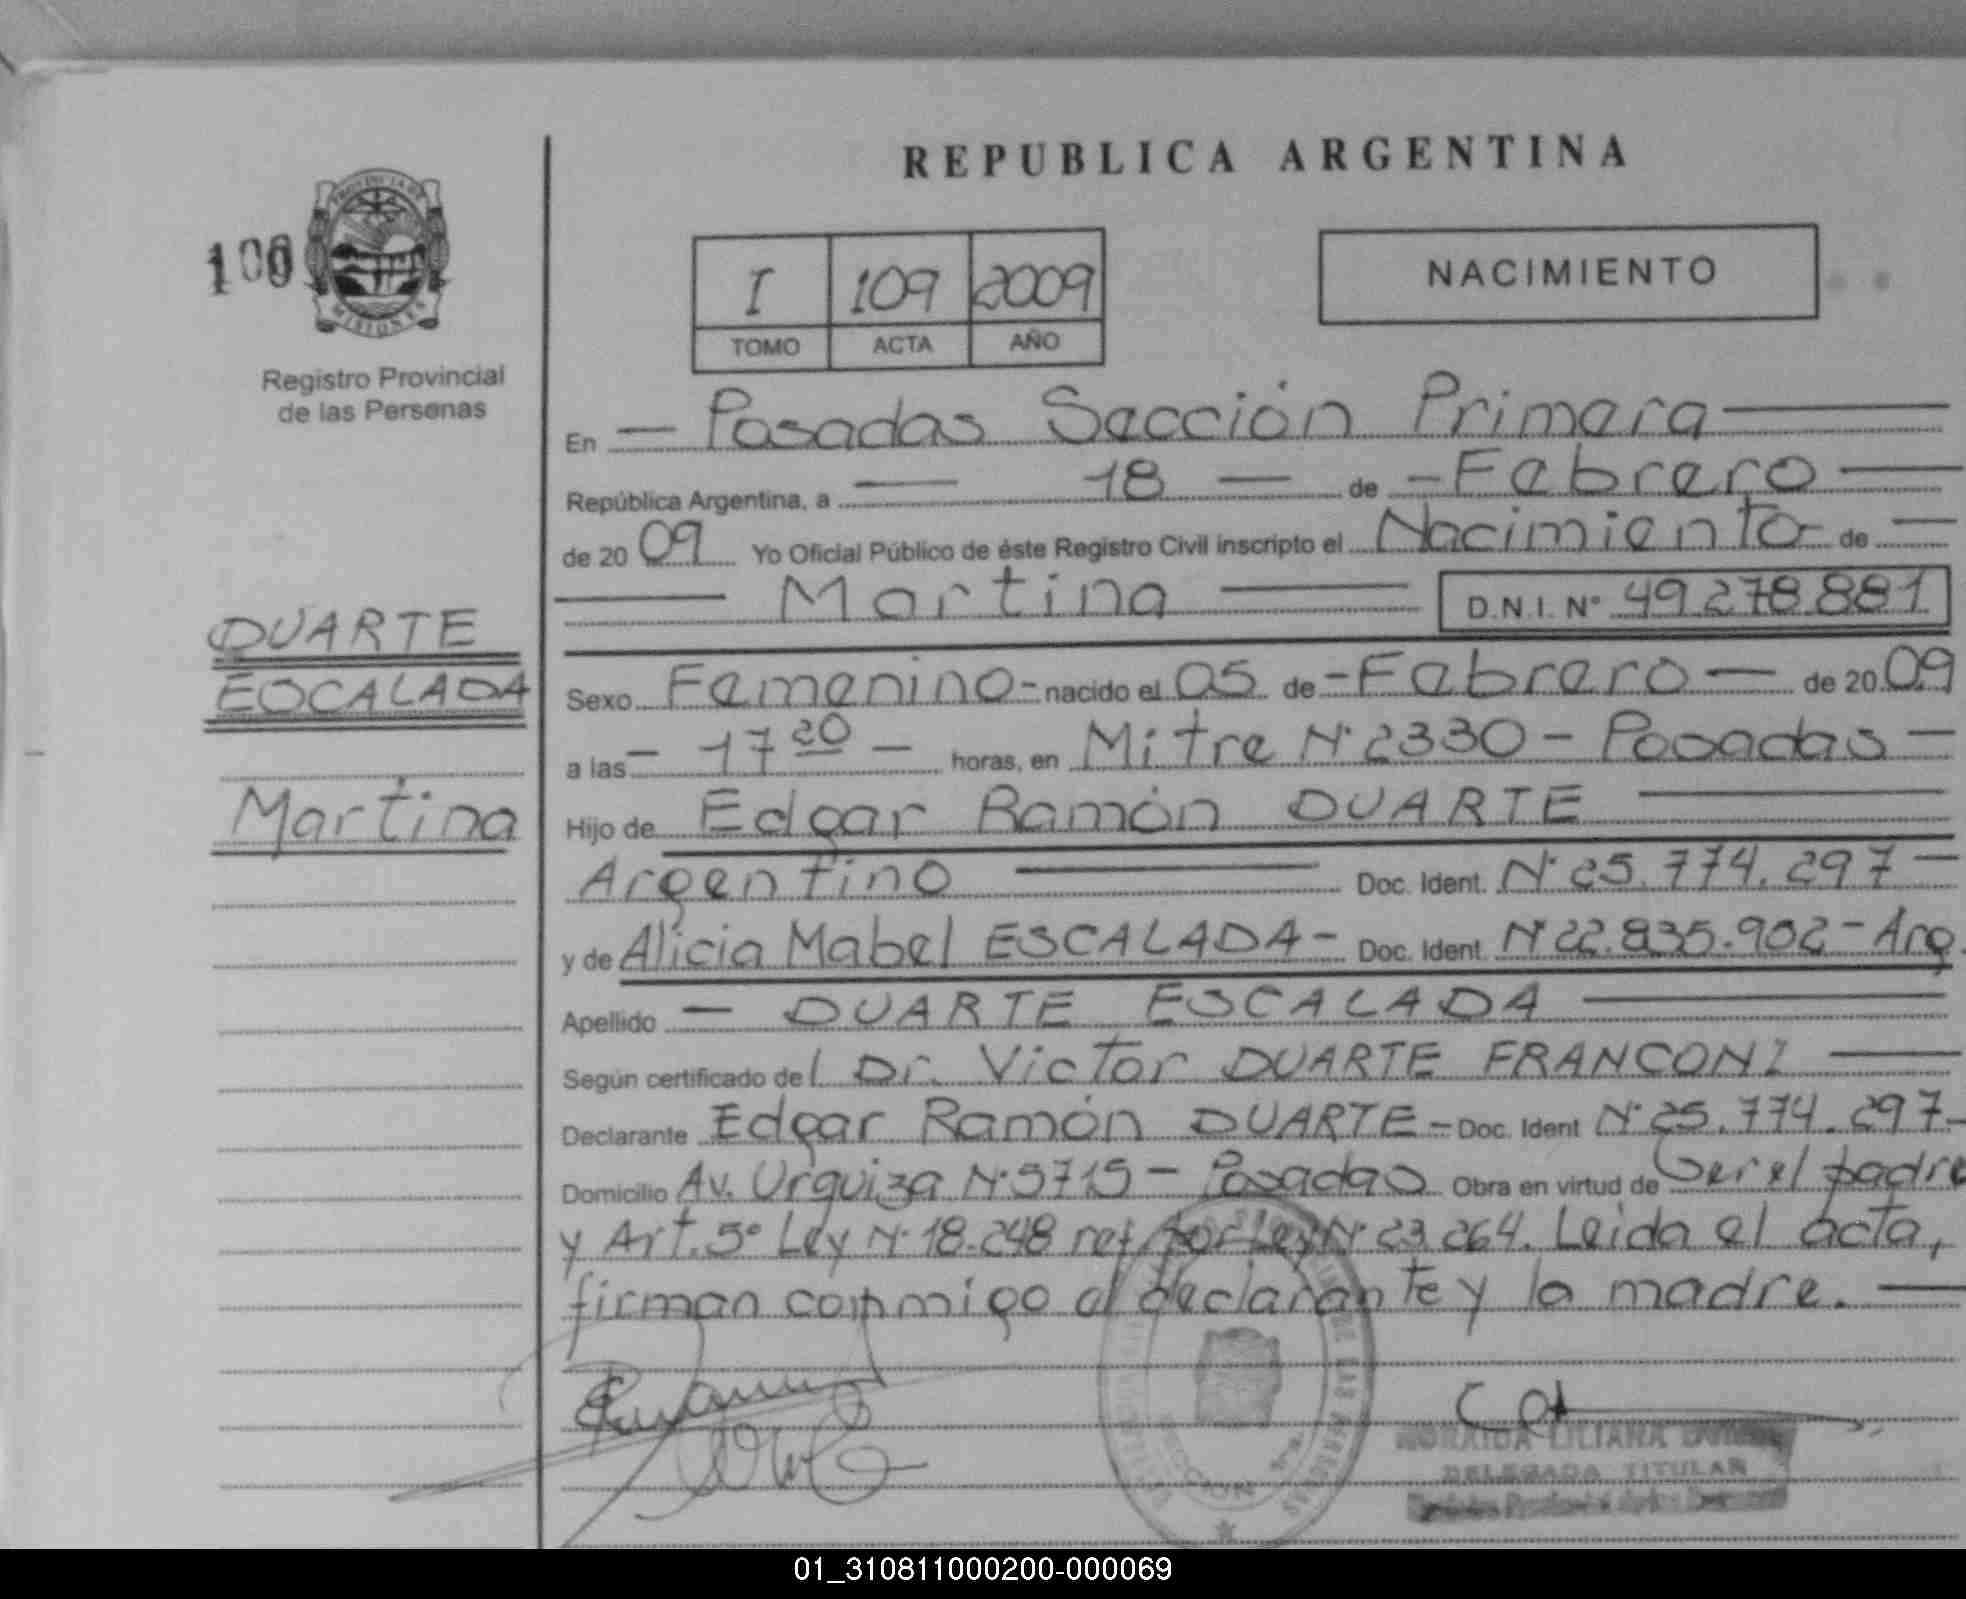 REPUBLICA ARGENTINA
PROVINCIA DE
MISIONES
Registro Provincial
de las Personas
I 109 2009
TOMO ACTA AÑO
NACIMIENTO
En — Posadas Sección Primera —
República Argentina, a — 18 — de - Febrero —
de 20 09 Yo Oficial Público de éste Registro Civil inscripto el Nacimiento - de —
— Martina — D.N.I. Nº 49278881
DUARTE
ESCALADA
Martina
Sexo Femenino - nacido el 05 de - Febrero — de 20 09
a las - 17 20 - horas, en Mitre Nº 2330 - Posadas —
Hijo de Edgar Ramón DUARTE —
Argentino — Doc. Ident. Nº 25.774.297 —
y de Alicia Mabel ESCALADA - Doc. Ident. Nº 22.835.902 - Arg.
Apellido — DUARTE ESCALADA —
Según certificado del Dr. Victor DUARTE FRANCONI —
Declarante Edgar Ramón DUARTE - Doc. Ident Nº 25.774.297 -
Domicilio Av. Urquiza Nº 5715 - Posadas Obra en virtud de Ser el padre
y Art. 5º Ley Nº 18.248 ref. por Ley Nº 23.264. Leida el acta,
firman conmigo el declarante y la madre. —
LILIANA
DELEGADA TITULAR
01_310811000200-000069